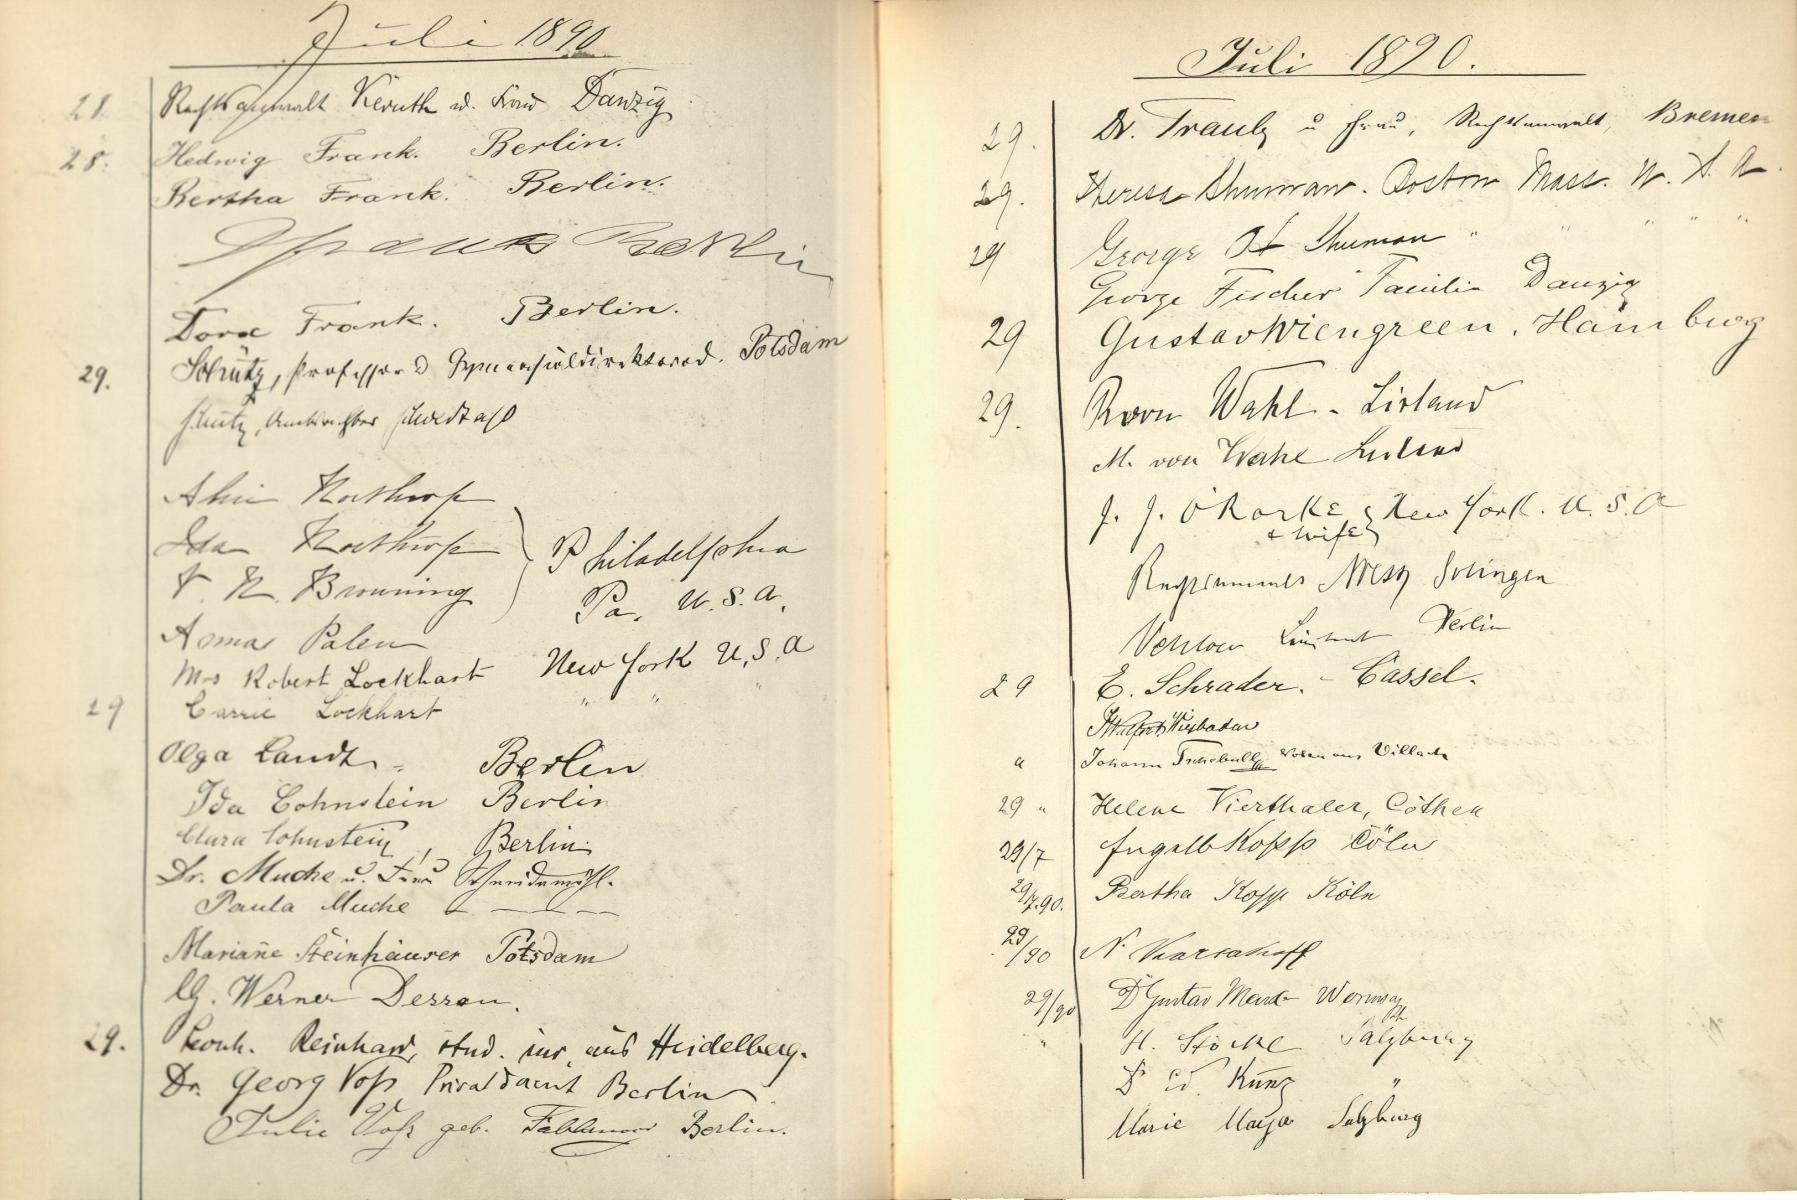 Juli 1890
28. Rechtsanwalt Keruth u. Frau Danzig
28. Hedwig Frank. Berlin.
Bertha Frank. Berlin.
Frank Berlin
Dora Frank. Berlin.
29. Schütz, Professor Gymnasialdirektor Potsdam
Schütz, Amtsrichter
Northrop
Ida Northrop
N. Browning
Philadelphia
Pa. U.S.A.
Anna Palen
Mrs Robert Lockhart New York U.S.A
29 Carrie Lockhart " " "
Olga Landt Berlin
Ida Cohnstein Berlin
Clara Cohnstein, Berlin.
Dr. Mucke u. Frau Schneidemühl.
Paula Mucke — — — —
Mariañe Steinhäuser Potsdam
G. Werner Dessau.
29. Leonh. Reinhard, stud. jur. aus Heidelberg.
Dr. Georg Voß Privatdocent Berlin
Julie Voß geb. Berlin.
Juli 1890.
29. Dr. Traub u Frau, Rechtsanwalt, Bremen
29. Theresa Shuman. Boston Mass. U. S. A.
29 George H Shuman " " " "
George Fischer Familie Danzig
29 Gustav Wiengreen. Hamburg
29. von Wahl - Livland
M. von Wahl Livland
J. J. O'Rorke New York. U. S. A
& wife
Solingen
Berlin
29 E. Schrader. - Cassel.
Wiesbaden
" Johann Tschebull aus Villach
29 " Helene Vierthaler, Cöthen
29/7 Kopp Cöln
29/7.90. Bertha Kopp Köln
29/90 N.
29/90 Dr Gustav Worms
" H. Salzburg
Dr Ed. Kunz "
Marie Salzburg